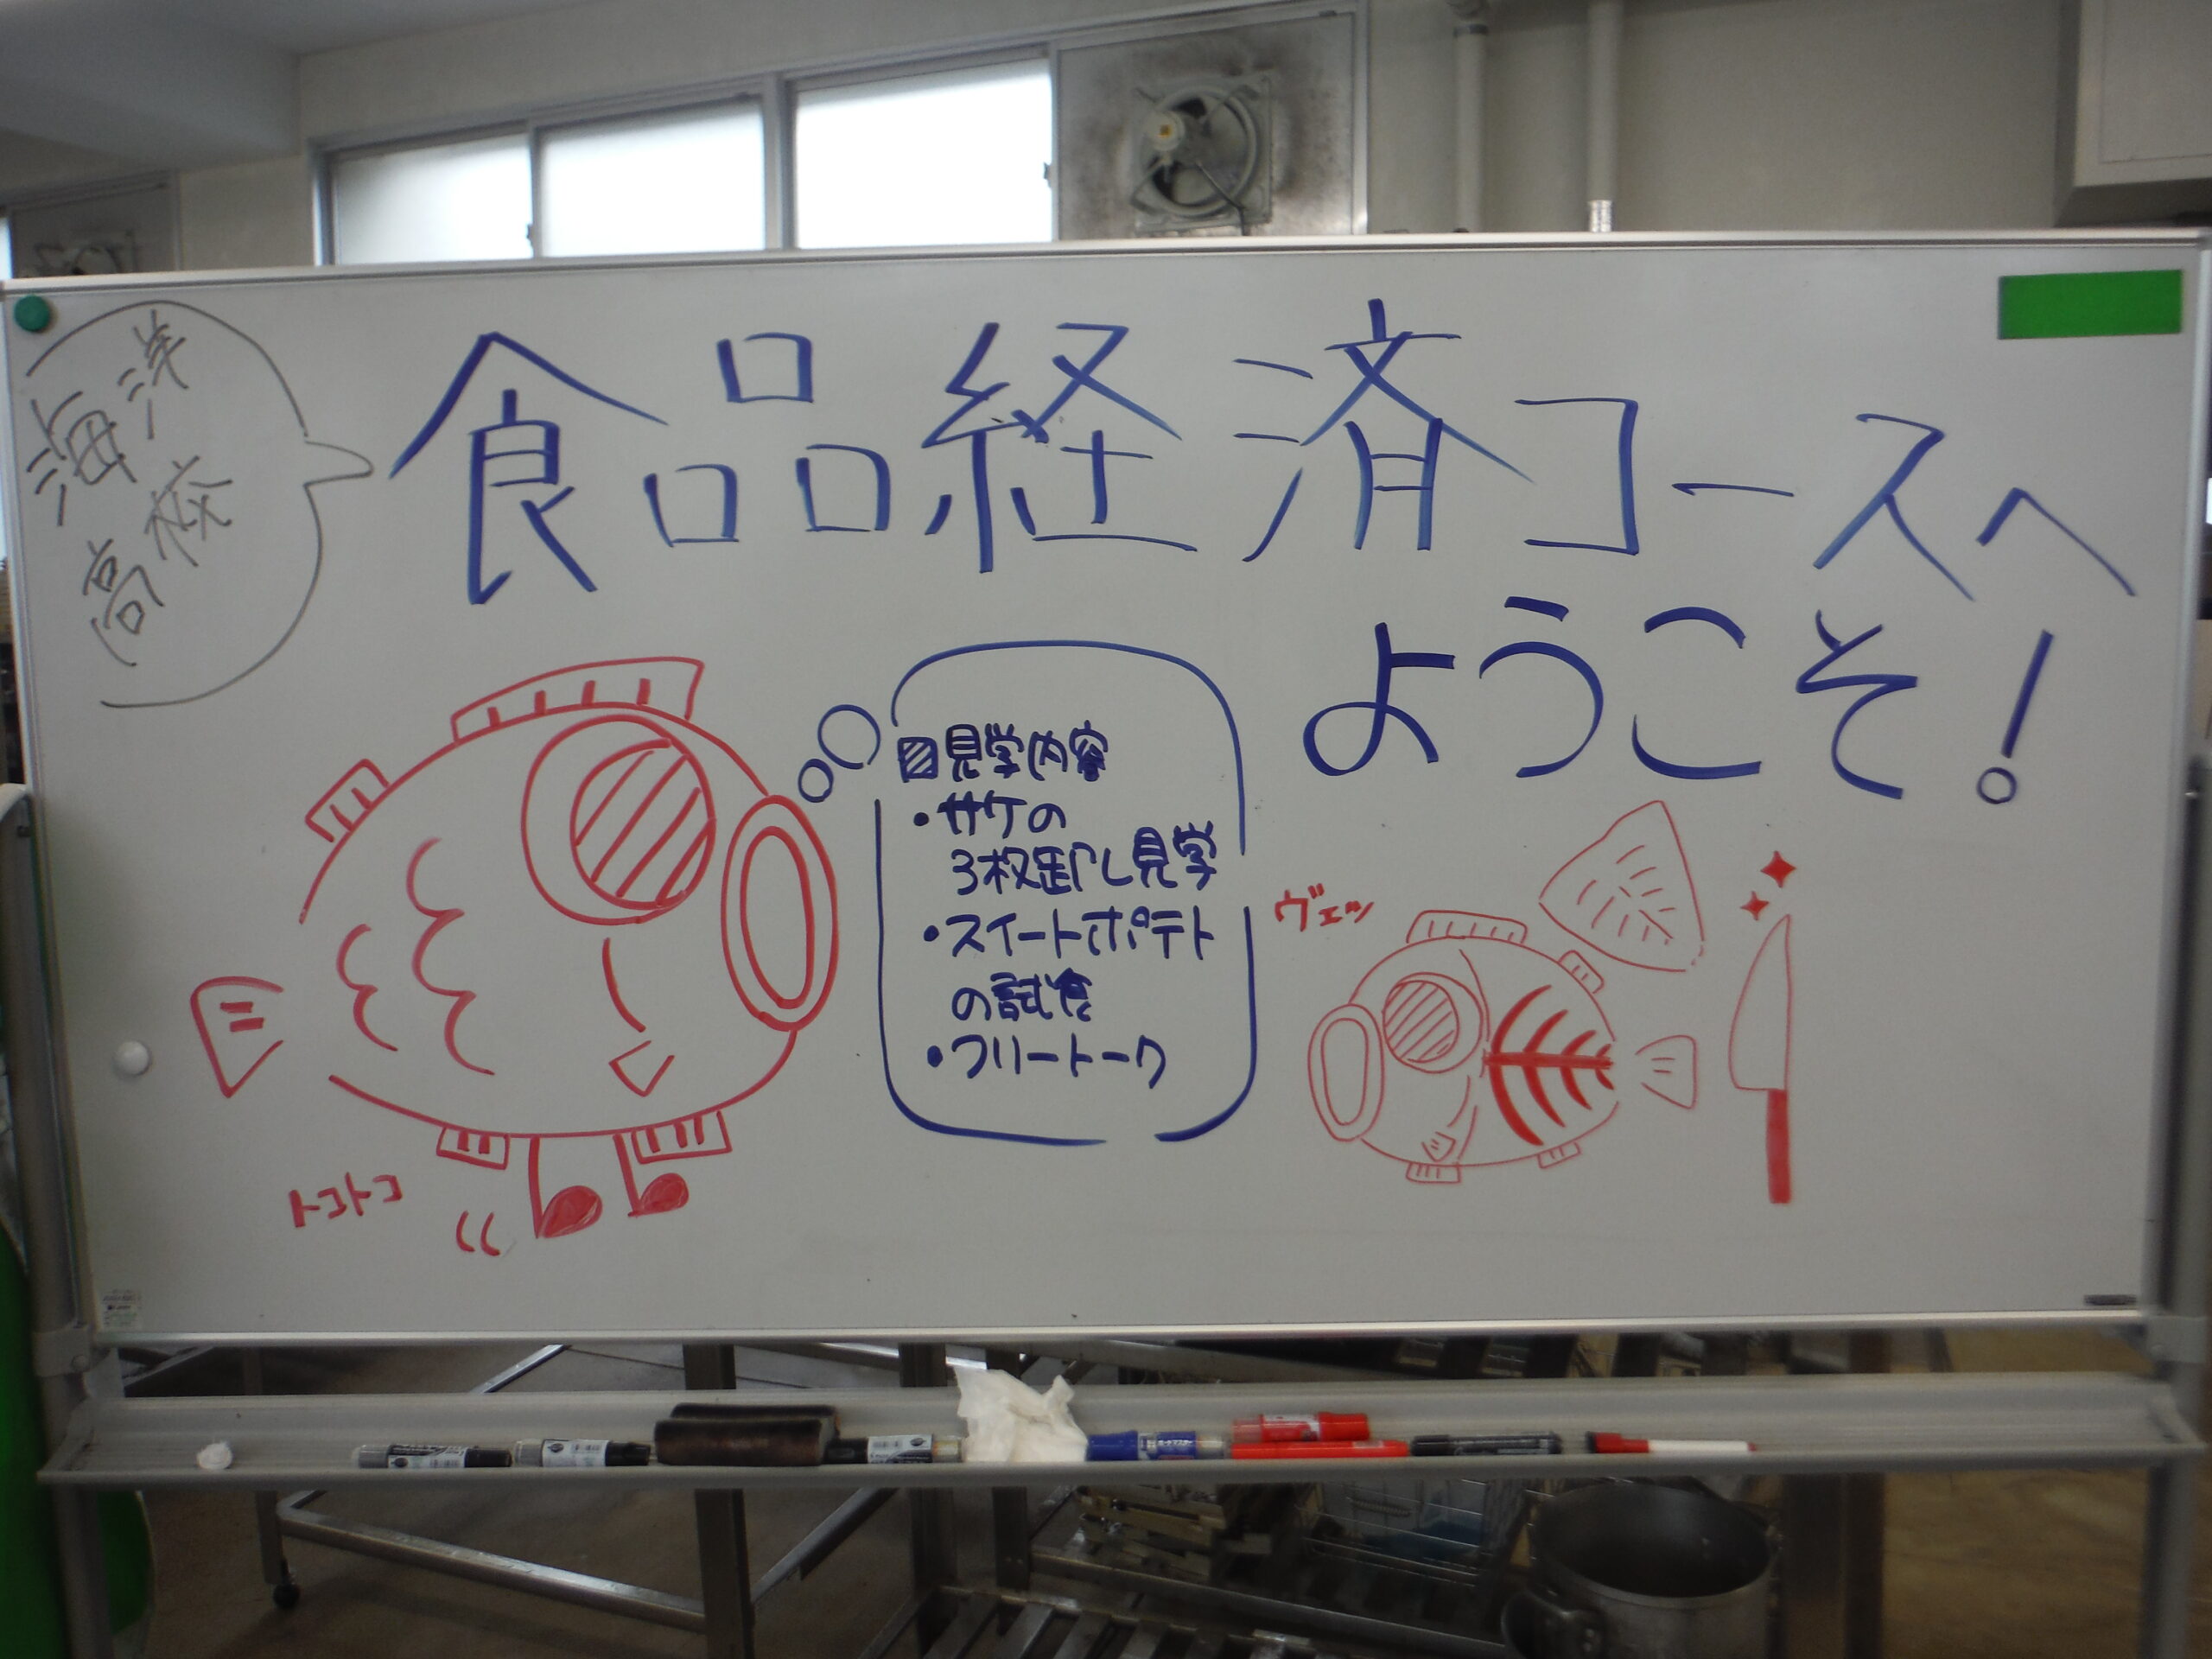 海洋
高校
食品経済コースへ
ようこそ!
見学内容
・サケの
3枚卸し見学
・スイートポテト
の試食
・フリートーク
ヴェッ
トコトコ